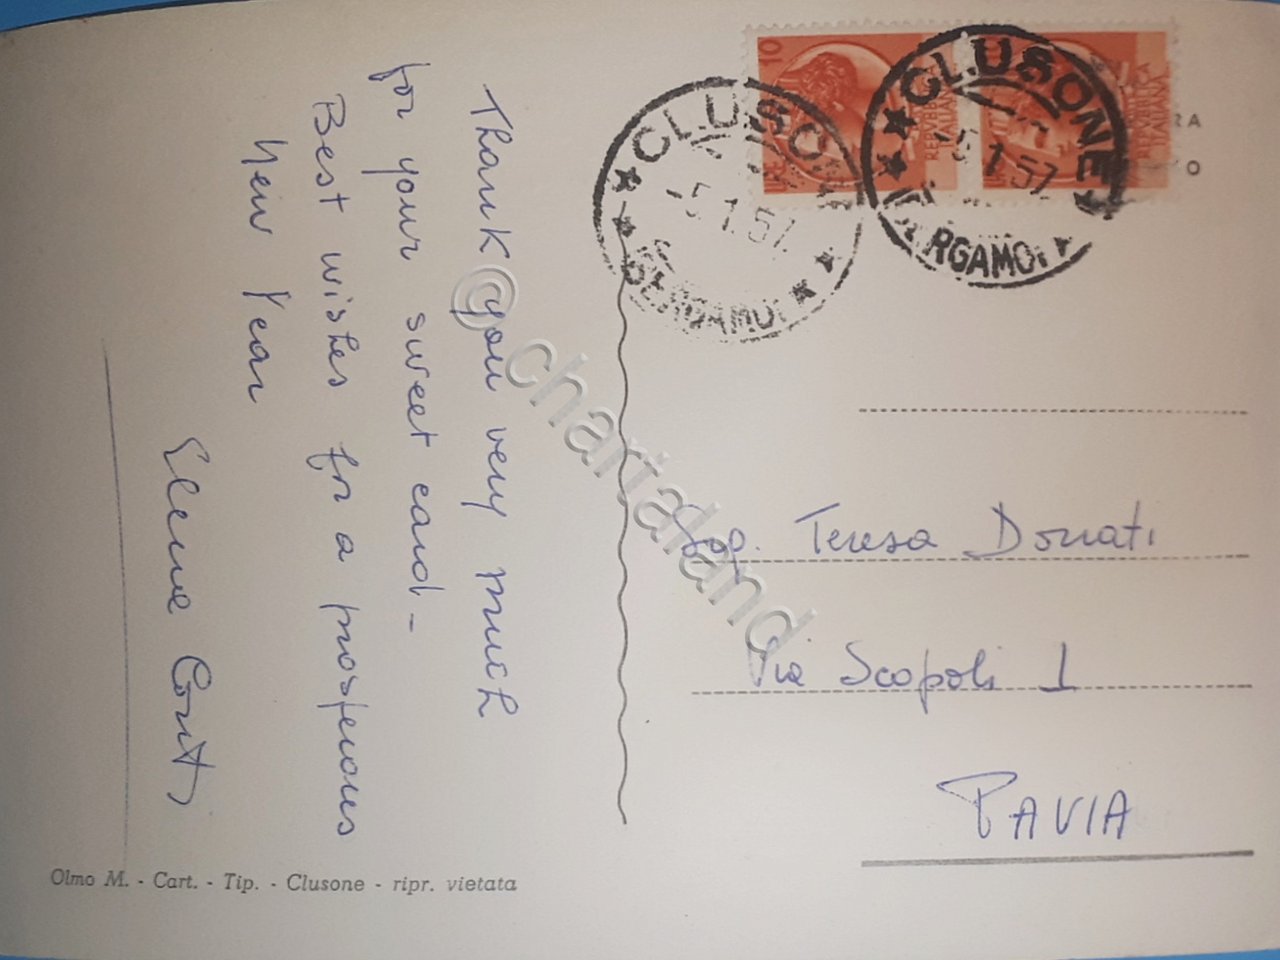 Thank you very much
for your sweet card -
Best wishes for a prosperous
New Year
CLUSONE
-5.1.57.
BERGAMO
CLUSONE
-5.1.57
BERGAMO
10
LIRE
REPVBBLICA
ITALIANA
REPVBBLICA
ITALIANA
RA
O
Teresa Donati
Via Scopoli 1
PAVIA
Olmo M. - Cart. - Tip. - Clusone - ripr. vietata
@chartaland